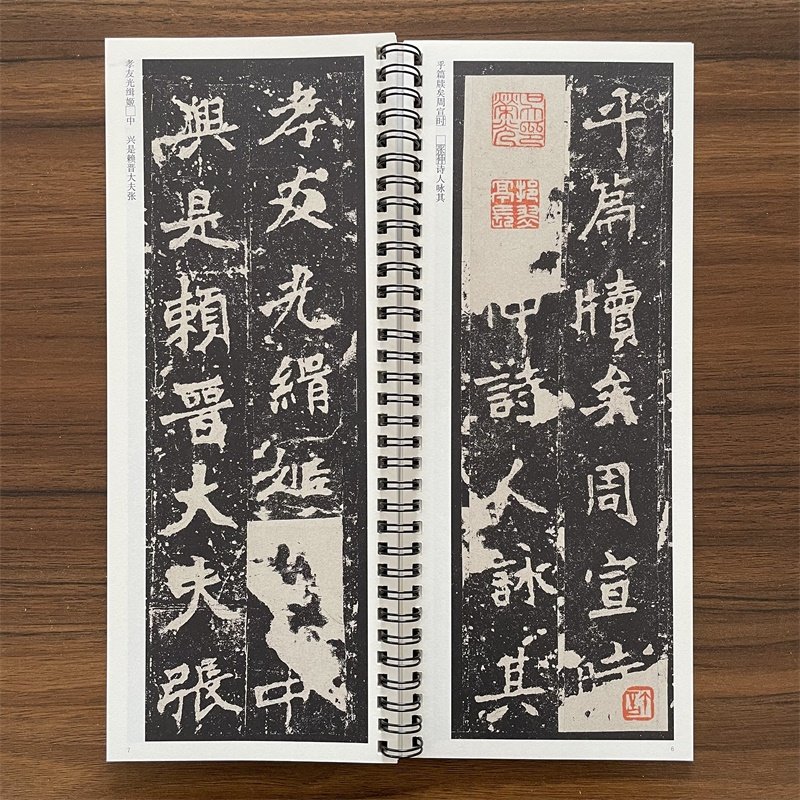 乎篇牍矣周宣时 □张仲诗人咏其
乎篇牘矣周宣時
仲詩人詠其
6
孝友光缉姬□中 兴是赖晋大夫张
孝友光緝中
興是頼晉大夫張
7